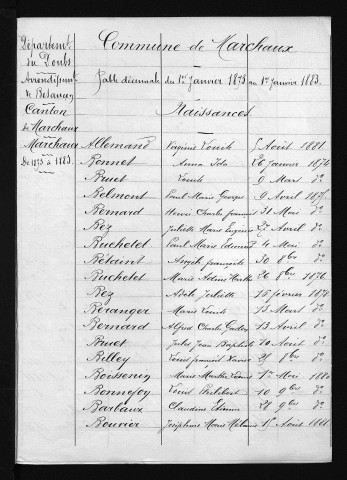 Département
du Doubs
Arrondissement
de Besançon
Canton
de Marchaux
Marchaux
De 1873 à 1883.
Commune de Marchaux
Table décennale du 1er Janvier 1873 au 1er Janvier 1883.
Naissances
Allemand Virginie Louise 5 Août 1881.
Bonnet Anna Ida 26 Janvier 1874
Bruet Louis 9 Mars do
Belmont Paul Marie Georges 9 Avril
Bernard Henri Charles François 31 Mai do
Bez Juliette Marie Eugénie 27 Avril do
Buchelet Paul Marie Edmond 4 Mai do
Bétaint Joseph François 30 8bre do
Buchelet Marie Adèle Marthe 26 8bre 1876
Bez Adèle Juliette 15 février 1878
Béranger Marie Louise 13 Mars do
Bernard Alfred Charles Gustave 13 Avril do
Bruet Jules Jean Baptiste 10 Août do
Billey Louis François Xavier 21 8bre do
Boissenin Marie Marthe 1er Mai 1880
Bonnefoy Louis Philibert 10 9bre do
Barbaux Claudine Etienne 21 9bre do
Bouvier Joséphine Marie Mélanie 1er Août 1881